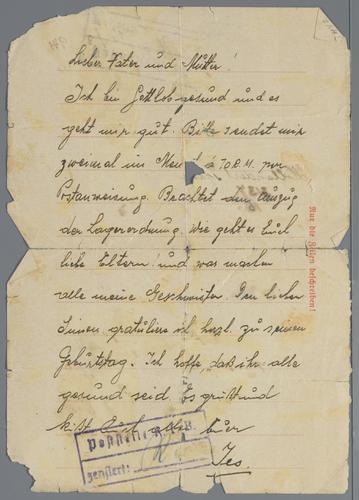 Lieber Vater und Mutter!
Ich bin Gottlob gesund und es
geht mir gut. Bitte sendet mir
zweimal im Monat à 70 R.M. per
Postanweisung. Beachtet den Auszug
der Lagerordnung. Wie geht es Euch
liebe Eltern! und was machen
alle meine Geschwister. Den lieben
Simon gratuliere ich herzl. zu seinem
Geburtstag. Ich hoffe, daß ihr alle
gesund seid. Es grüßt und
küßt Euch alle Euer
Jes.
Nur die Zeilen beschreiben!
Poststelle
zensiert: